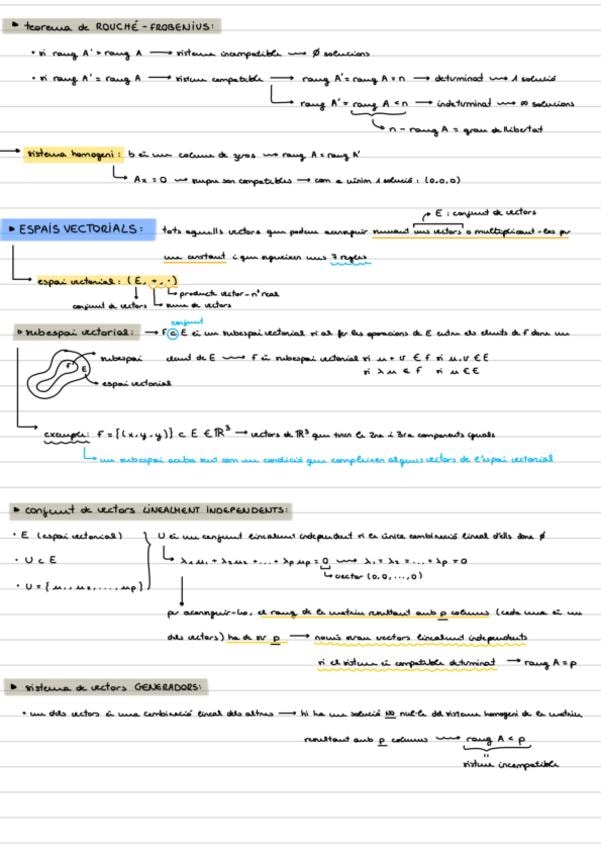 ▸ teorema de ROUCHÉ-FROBENIUS:
• si rang A' > rang A → sistema incompatible ⇝ ∅ solucions
• si rang A' = rang A → sistema compatible → rang A' = rang A = n → determinat ⇝ 1 solució
↳ rang A' = rang A < n → indeterminat ⇝ ∞ solucions
↳ n - rang A = grau de llibertat
→ sistema homogeni: b és una columna de zeros ⇝ rang A = rang A'
↳ Ax = 0 ⇝ sempre son compatibles → com a mínim 1 solució: (0,0,0)
↗ E: conjunt de vectors
▸ ESPAIS VECTORIALS: tots aquells vectors que podem aconseguir sumant uns vectors o multiplicant-los per
una constant i que segueixen unes 7 regles
→ espai vectorial: (E, +, ·)
↳ producte vector-nº real
conjunt de vectors ↳ suma de vectors
conjunt
▸ subespai vectorial: → F ⊂ E és un subespai vectorial si al fer les operacions de E entre els elements de F dona un
subespai element de E ⇝ F és subespai vectorial si u + v ∈ F si u, v ∈ E
F E si λu ∈ F si u ∈ E
espai vectorial
exemple: F = {(x,y,y)} ⊂ E ∈ ℝ³ → vectors de ℝ³ que tenen la 2na i 3ra components iguals
↳ un subespai acaba sent com una condició que compleixen alguns vectors de l'espai vectorial
▸ conjunt de vectors LINEALMENT INDEPENDENTS:
• E (espai vectorial) U és un conjunt linealment independent si la única combinació lineal d'ells dona ∅
• U ⊂ E ↳ λ₁u₁ + λ₂u₂ + ... + λpup = 0 ⇝ λ₁ = λ₂ = ... = λp = 0
↳ vector (0,0,...,0)
• U = {u₁, u₂, ..., up}
per aconseguir-ho, el rang de la matriu resultant amb p columnes (cada una és un
dels vectors) ha de ser p → només seran vectors linealment independents
si el sistema és compatible determinat → rang A = p
▸ sistema de vectors GENERADORS:
• un dels vectors és una combinació lineal dels altres → hi ha una solució NO nul·la del sistema homogeni de la matriu
resultant amb p columnes ⇝ rang A < p
"
sistema incompatible